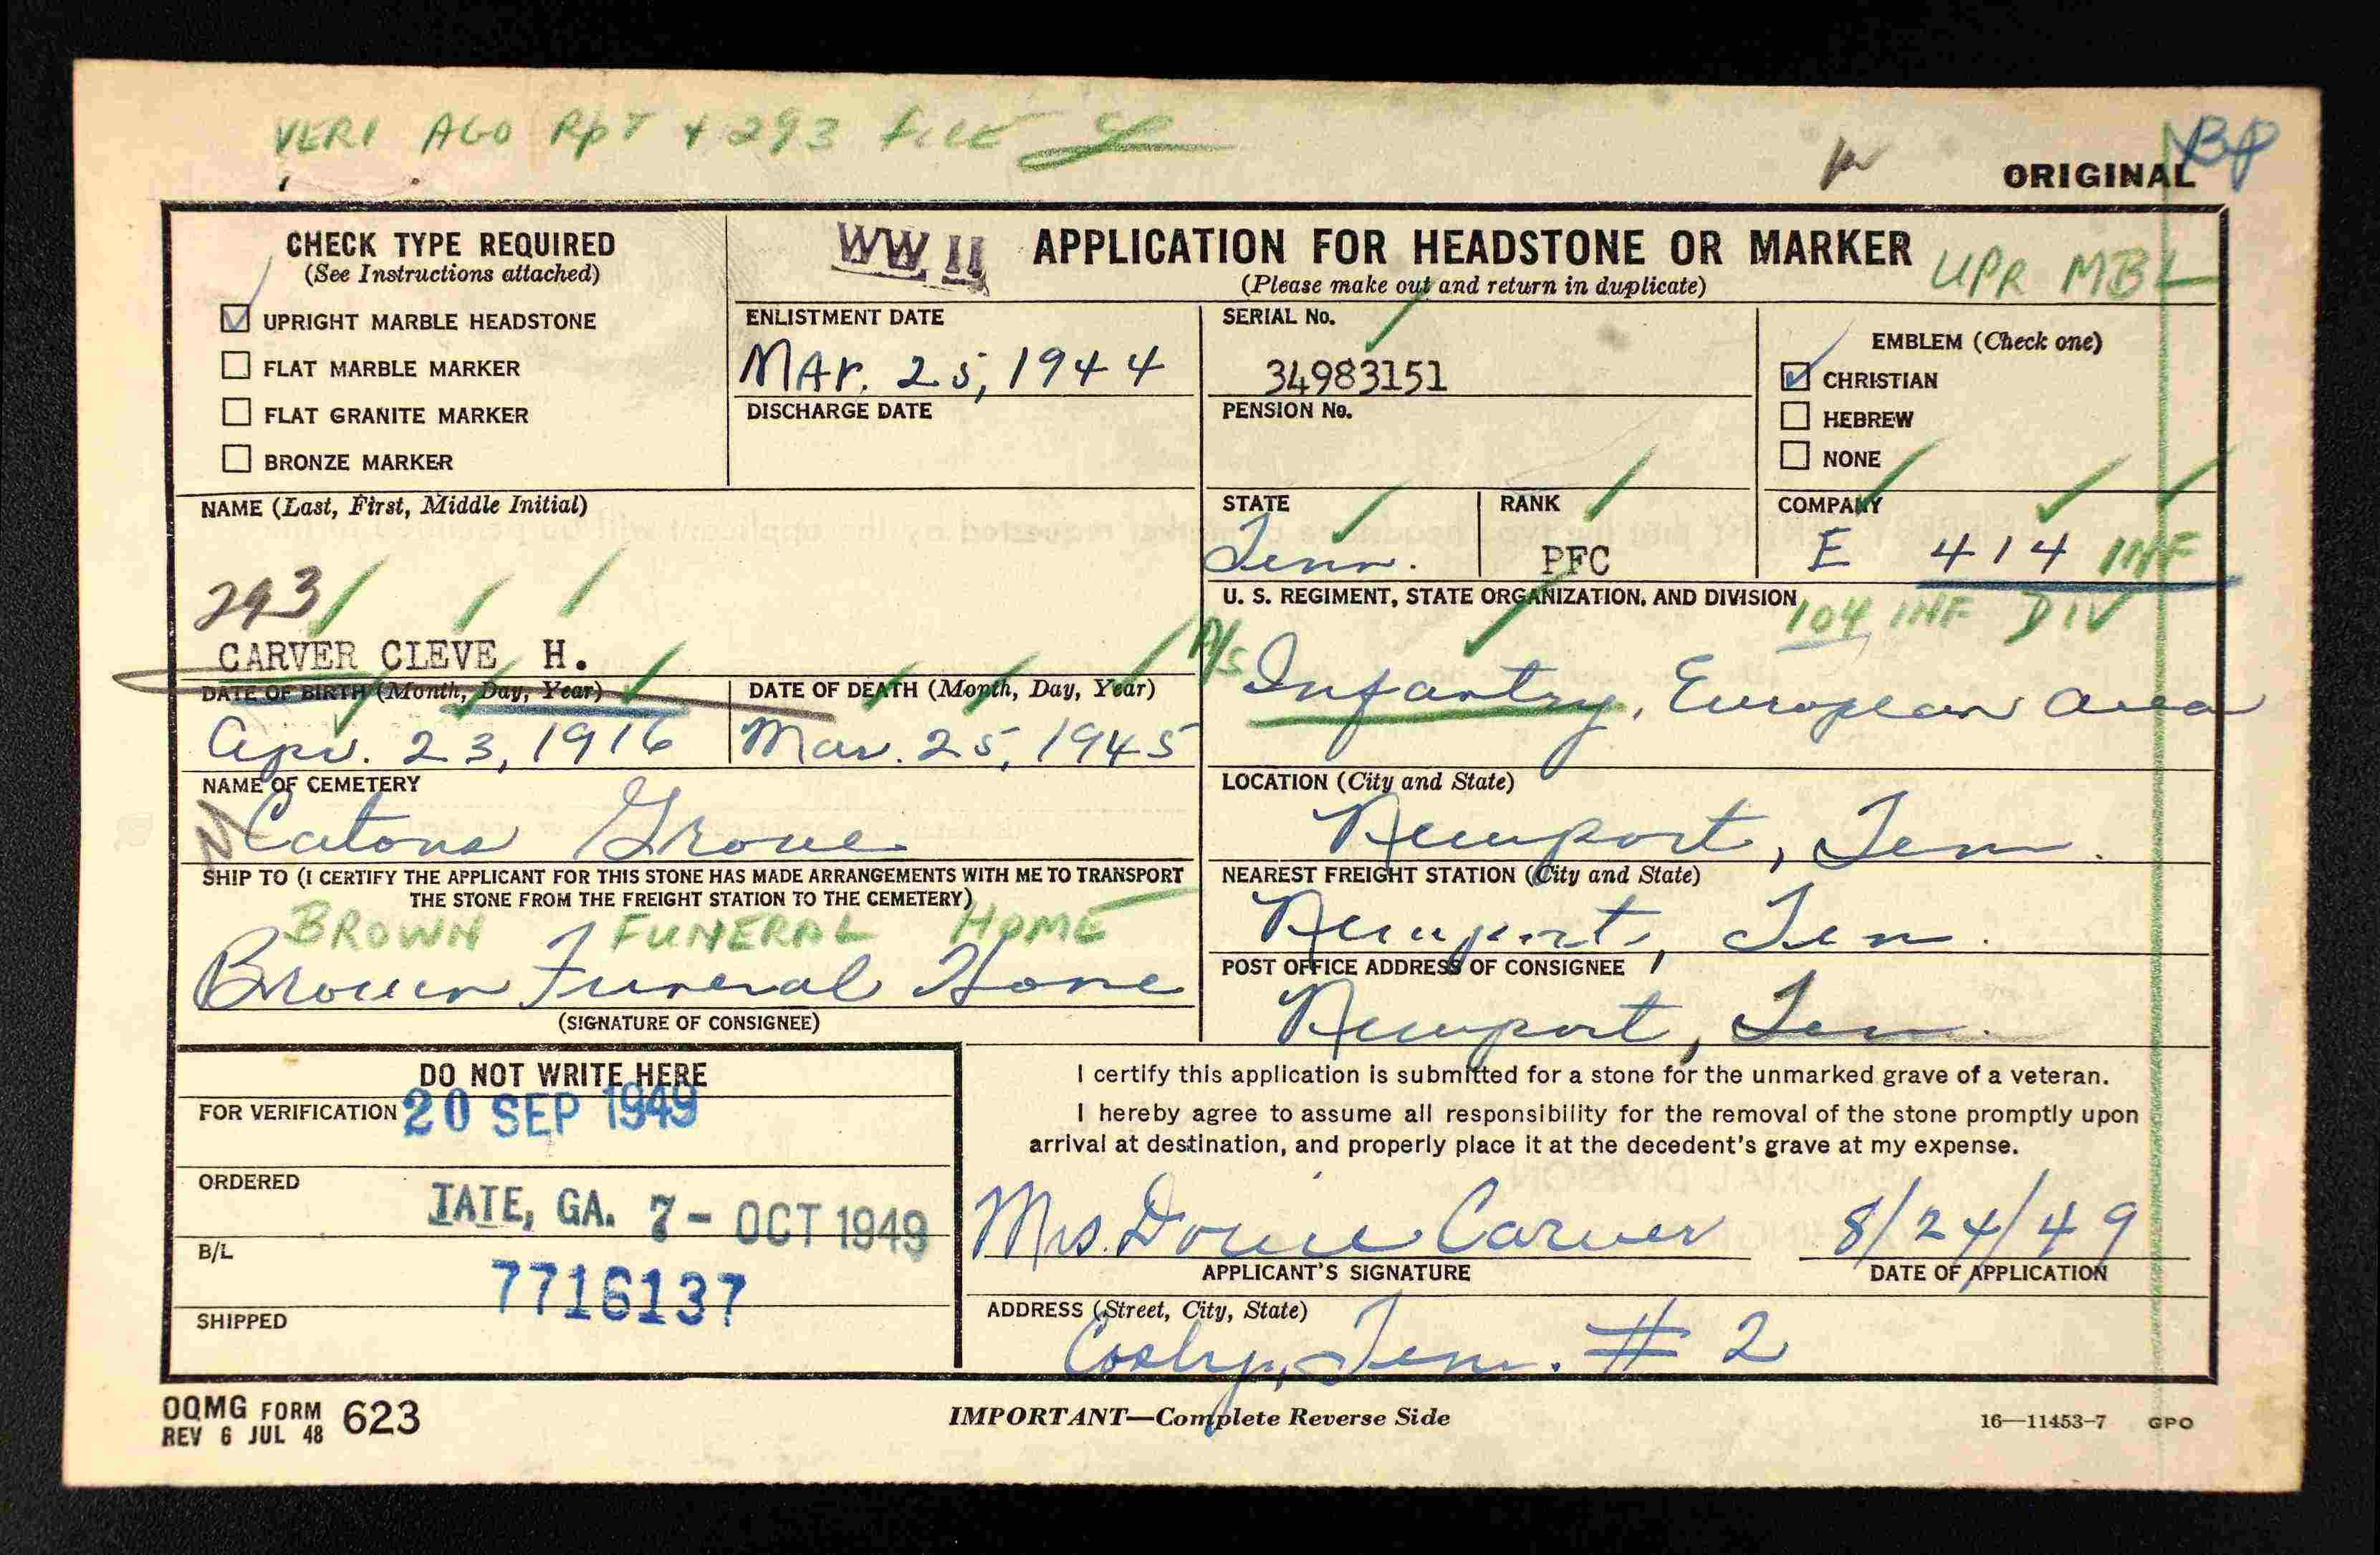 VERI AGO RPT + 293 FILE
ORIGINAL
CHECK TYPE REQUIRED
(See Instructions attached)
UPRIGHT MARBLE HEADSTONE
FLAT MARBLE MARKER
FLAT GRANITE MARKER
BRONZE MARKER
WW II APPLICATION FOR HEADSTONE OR MARKER
(Please make out and return in duplicate)
UPR MBL
ENLISTMENT DATE
Mar. 25, 1944
DISCHARGE DATE
SERIAL No.
34983151
PENSION No.
EMBLEM (Check one)
CHRISTIAN
HEBREW
NONE
NAME (Last, First, Middle Initial)
293
CARVER CLEVE H.
STATE
Tenn.
RANK
PFC
COMPANY
E 414 INF
U. S. REGIMENT, STATE ORGANIZATION, AND DIVISION
104 INF DIV
A/S Infantry, European area
DATE OF BIRTH (Month, Day, Year)
Apr. 23, 1916
DATE OF DEATH (Month, Day, Year)
Mar. 25, 1945
NAME OF CEMETERY
Catons Grove
LOCATION (City and State)
Newport, Tenn.
SHIP TO (I CERTIFY THE APPLICANT FOR THIS STONE HAS MADE ARRANGEMENTS WITH ME TO TRANSPORT
THE STONE FROM THE FREIGHT STATION TO THE CEMETERY)
BROWN FUNERAL HOME
Brown Funeral Home
(SIGNATURE OF CONSIGNEE)
NEAREST FREIGHT STATION (City and State)
Newport, Ten.
POST OFFICE ADDRESS OF CONSIGNEE
Newport, Ten.
DO NOT WRITE HERE
FOR VERIFICATION 20 SEP 1949
ORDERED
TATE, GA. 7 - OCT 1949
B/L
7716137
SHIPPED
I certify this application is submitted for a stone for the unmarked grave of a veteran.
I hereby agree to assume all responsibility for the removal of the stone promptly upon
arrival at destination, and properly place it at the decedent's grave at my expense.
Mrs. Carver 8/24/49
APPLICANT'S SIGNATURE
DATE OF APPLICATION
ADDRESS (Street, City, State)
Cosby, Tenn. # 2
OQMG FORM 623
REV 6 JUL 48
IMPORTANT—Complete Reverse Side
16—11453-7 GPO